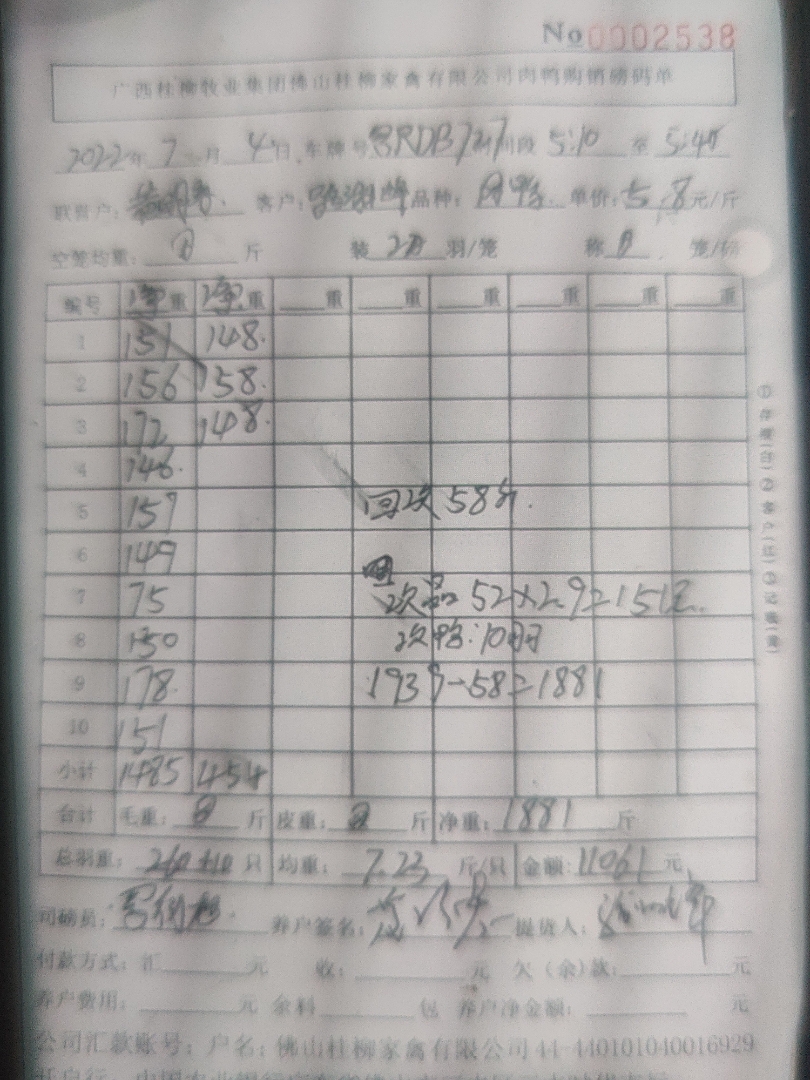 No 0002538
广西桂柳牧业集团佛山桂柳家禽有限公司肉鸭购销磅码单
2022年 7 月 4 日 车牌号 RDB 时间段 5:10 至 5:45
联营户: 客户: 品种: 单价: 5.8 元/斤
空笼均重: 斤 装 20 羽/笼 称 笼/
编号 净重 净重 重 重 重 重 重 重
1 151 148
2 156 158
3 172 148
4 146
5 157 回次 58斤
6 149
7 75 次品 52×2.9=151元
8 150 次鸭:10
9 178 1939-58=1881
10 151
小计 1485 454
合计 毛重: 斤 皮重: 斤 净重: 1881 斤
总羽重: 260+10 只 均重: 7.23 斤/只 金额: 11061 元
司磅员: 养户签名: 提货人:
付款方式: 汇 元 收: 元 欠(余)款: 元
养户费用: 元 余料 包 养户净金额: 元
公司汇款账号: 户名: 佛山桂柳家禽有限公司 44-440101040016929
①存根(白)②客户(红)③记账(黄)